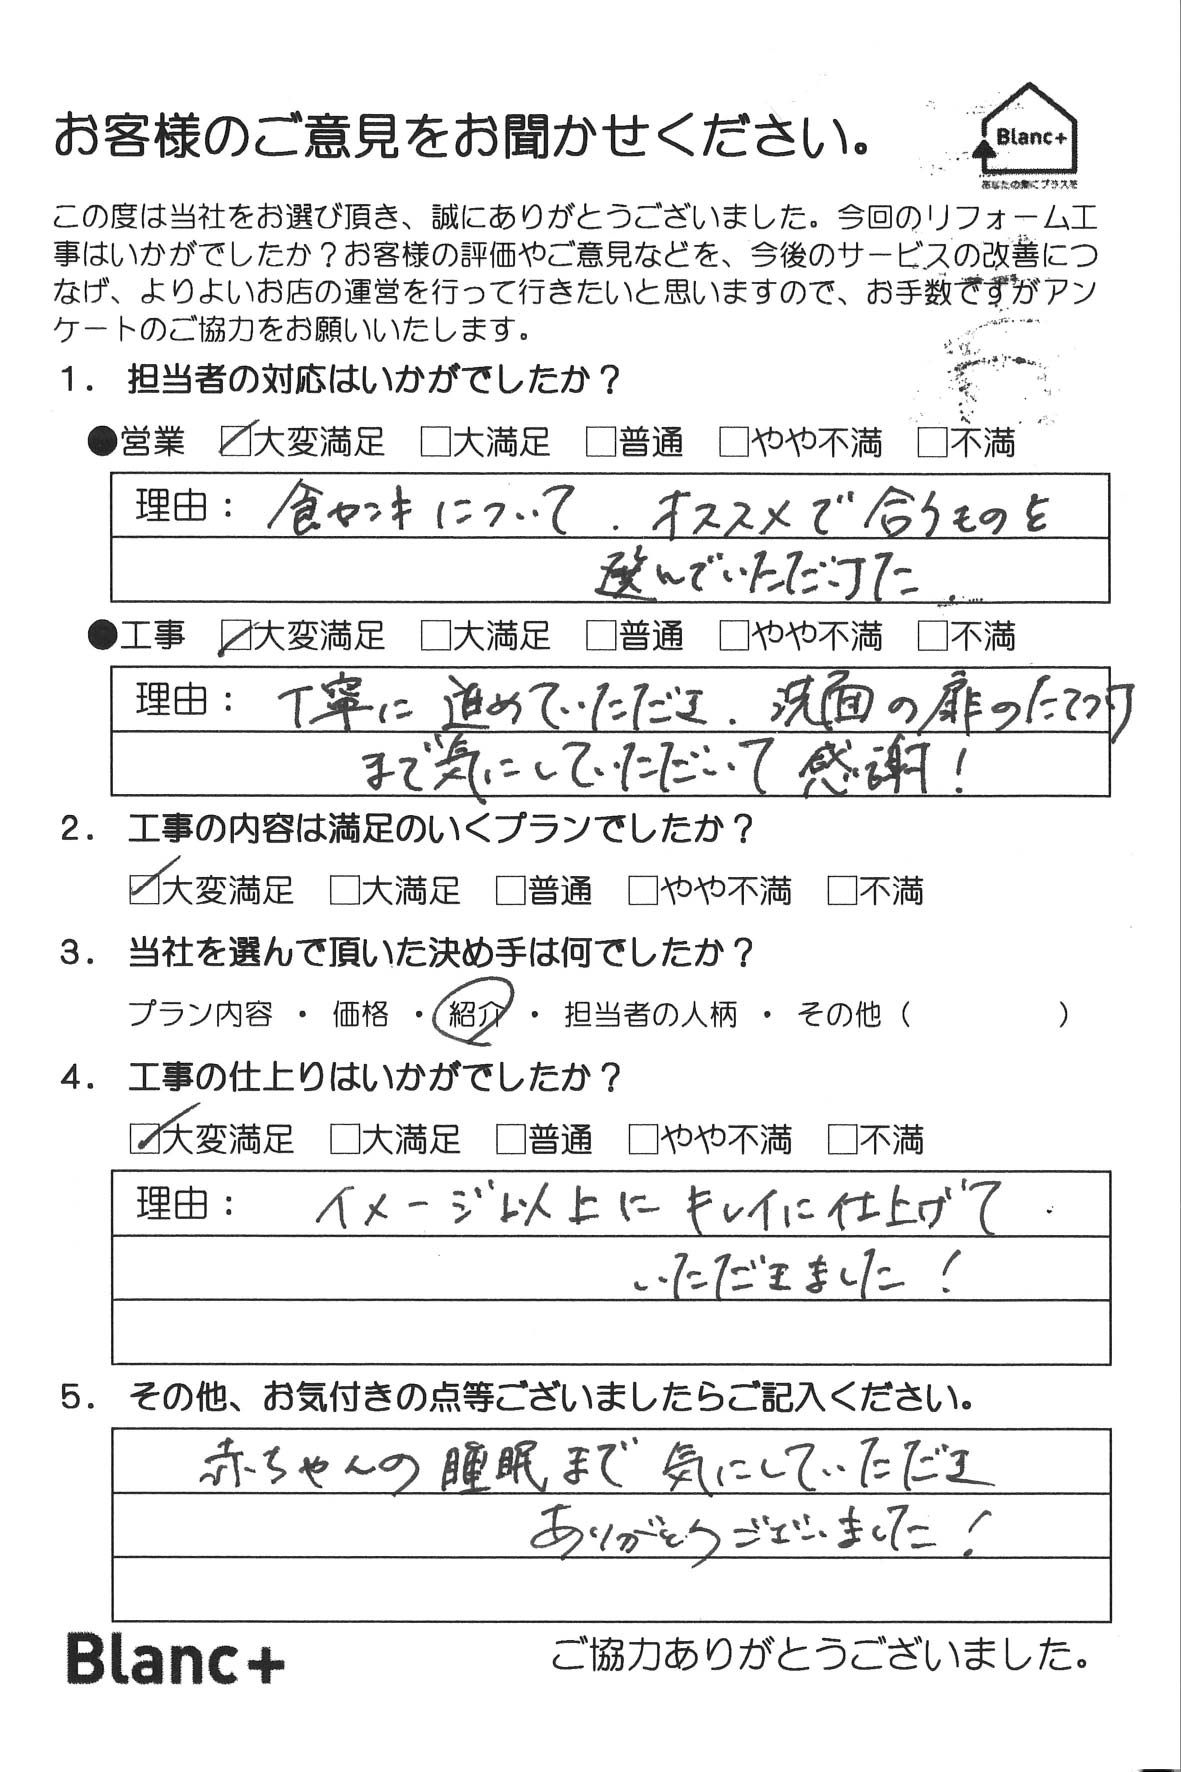 お客様のご意見をお聞かせください。
Blanc+
あなたの家にプラスを
この度は当社をお選び頂き、誠にありがとうございました。今回のリフォーム工
事はいかがでしたか？お客様の評価やご意見などを、今後のサービスの改善につ
なげ、よりよいお店の運営を行って行きたいと思いますので、お手数ですがアン
ケートのご協力をお願いいたします。
１． 担当者の対応はいかがでしたか？
●営業 ☑大変満足 □大満足 □普通 □やや不満 □不満
理由： 食センキについて、オススメで合うものを
選んでいただけた
●工事 ☑大変満足 □大満足 □普通 □やや不満 □不満
理由： 丁寧に進めていただき、洗面の扉のたてつけ
まで気にしていただいて感謝！
２． 工事の内容は満足のいくプランでしたか？
☑大変満足 □大満足 □普通 □やや不満 □不満
３． 当社を選んで頂いた決め手は何でしたか？
プラン内容 ・ 価格 ・ 紹介 ・ 担当者の人柄 ・ その他（ ）
４． 工事の仕上りはいかがでしたか？
☑大変満足 □大満足 □普通 □やや不満 □不満
理由： イメージ以上にキレイに仕上げて
いただきました！
５． その他、お気付きの点等ございましたらご記入ください。
赤ちゃんの睡眠まで気にしていただき
ありがとうございました！
Blanc+ ご協力ありがとうございました。